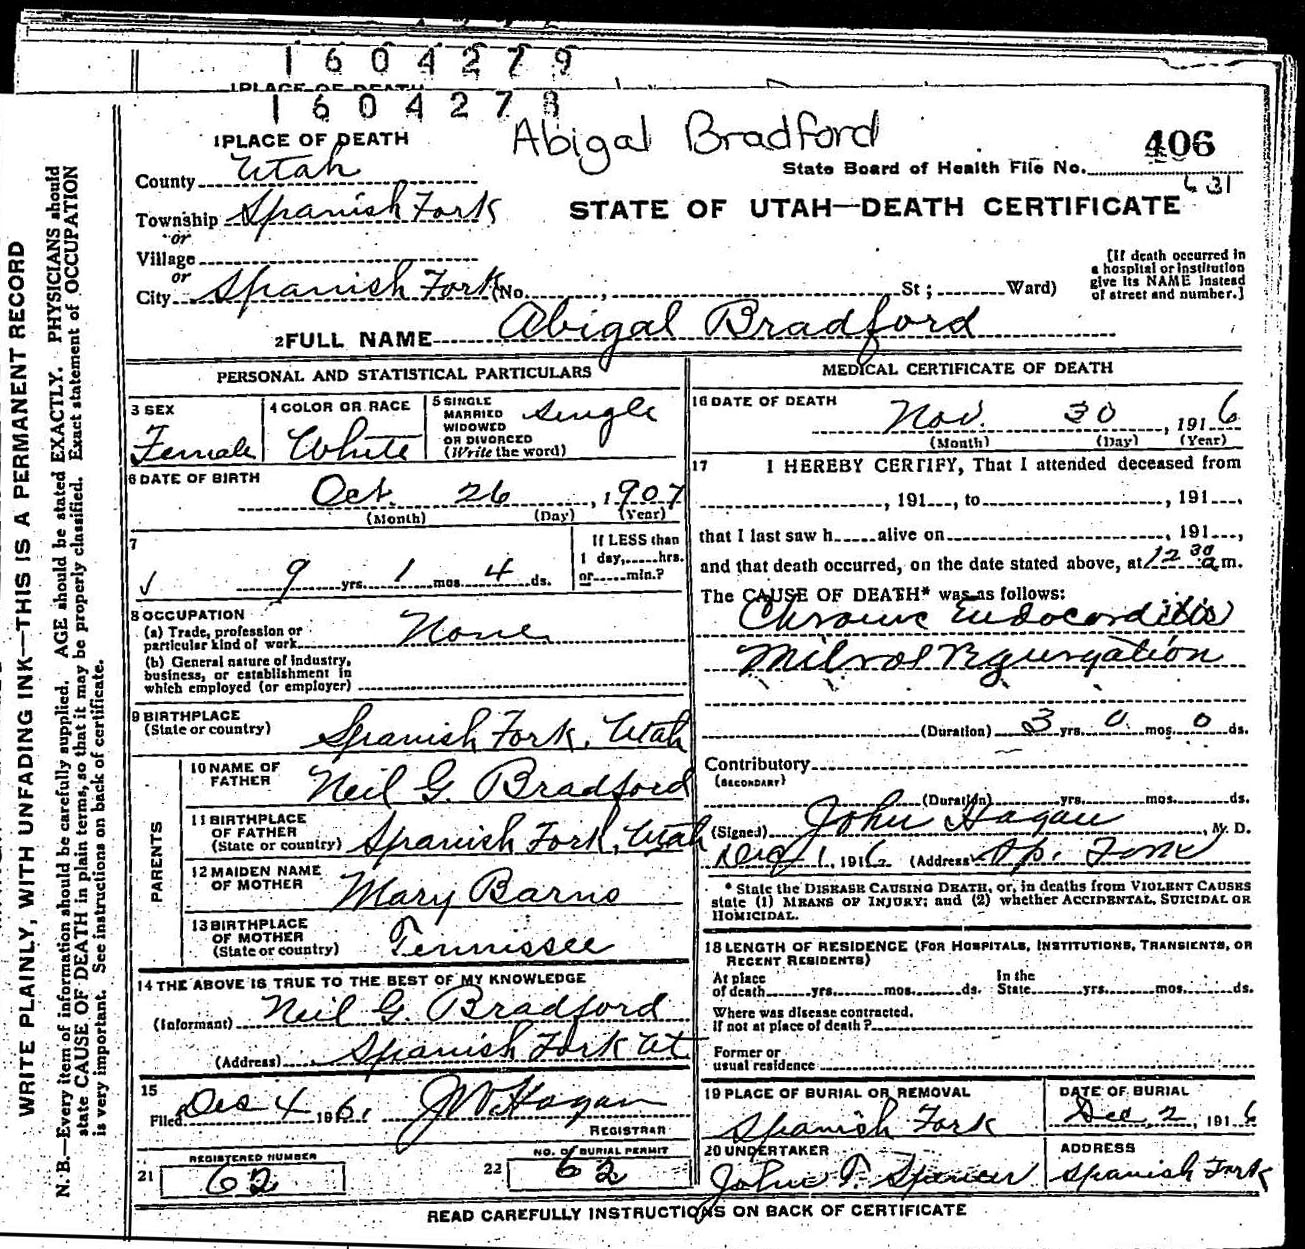 1604279
1PLACE OF DEATH
1604278
Abigal Bradford
1PLACE OF DEATH
406
State Board of Health File No.
631
County Utah
Township Spanish Fork
STATE OF UTAH—DEATH CERTIFICATE
or
Village
or
City Spanish Fork (No. , St ; Ward)
[If death occurred in
a hospital or institution
give its NAME instead
of street and number.]
2FULL NAME Abigal Bradford
PERSONAL AND STATISTICAL PARTICULARS
3 SEX
Female
4 COLOR OR RACE
White
5 SINGLE
MARRIED
WIDOWED
OR DIVORCED
(Write the word)
single
6 DATE OF BIRTH
Oct. 26, 1907
(Month) (Day) (Year)
7
9 yrs. 1 mos. 4 ds.
If LESS than
1 day, hrs.
or min.?
8 OCCUPATION
(a) Trade, profession or
particular kind of work None
(b) General nature of industry,
business, or establishment in
which employed (or employer)
9 BIRTHPLACE
(State or country) Spanish Fork, Utah
PARENTS
10 NAME OF
FATHER Neil G. Bradford
11 BIRTHPLACE
OF FATHER
(State or country) Spanish Fork, Utah
12 MAIDEN NAME
OF MOTHER Mary Barns
13 BIRTHPLACE
OF MOTHER
(State or country) Tennissee
14 THE ABOVE IS TRUE TO THE BEST OF MY KNOWLEDGE
(Informant) Neil G. Bradford
(Address) Spanish Fork Ut
15
Filed Dec 4 1916. J W Hagan
REGISTRAR
21 REGISTERED NUMBER
62
22 NO. OF BURIAL PERMIT
62
MEDICAL CERTIFICATE OF DEATH
16 DATE OF DEATH
Nov. 30, 1916
(Month) (Day) (Year)
17 I HEREBY CERTIFY, That I attended deceased from
, 191 , to , 191 ,
that I last saw h alive on , 191 ,
and that death occurred, on the date stated above, at 12 30 a m.
The CAUSE OF DEATH* was as follows:
Chronic Endocarditis
Mitral Rgurgation
(Duration) 3 yrs. 0 mos. 0 ds.
Contributory
(SECONDARY)
(Duration) yrs. mos. ds.
(Signed) John Hagan, M. D.
Dec 1, 1916 (Address) Sp. Fork
* State the DISEASE CAUSING DEATH, or, in deaths from VIOLENT CAUSES
state (1) MEANS OF INJURY; and (2) whether ACCIDENTAL, SUICIDAL OR
HOMICIDAL.
18 LENGTH OF RESIDENCE (FOR HOSPITALS, INSTITUTIONS, TRANSIENTS, OR
RECENT RESIDENTS)
At place
of death yrs. mos. ds.
In the
State yrs. mos. ds.
Where was disease contracted,
if not at place of death?
Former or
usual residence
19 PLACE OF BURIAL OR REMOVAL
Spanish Fork
DATE OF BURIAL
Dec. 2, 1916
20 UNDERTAKER
John T. Spencer
ADDRESS
Spanish Fork
READ CAREFULLY INSTRUCTIONS ON BACK OF CERTIFICATE
WRITE PLAINLY, WITH UNFADING INK—THIS IS A PERMANENT RECORD
N. B.—Every item of information should be carefully supplied. AGE should be stated EXACTLY. PHYSICIANS should
state CAUSE OF DEATH in plain terms, so that it may be properly classified. Exact statement of OCCUPATION
is very important. See instructions on back of certificate.